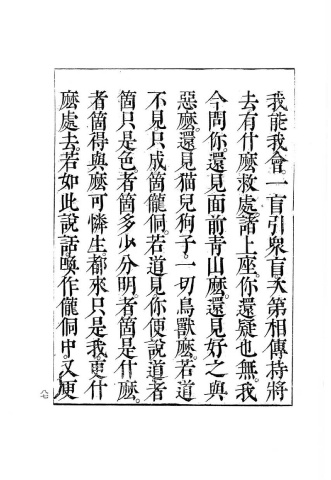 我能我會。一盲引衆盲。次第相傳持將
去有什麽救處。諸上座。你還疑也無。我
今問你。還見面前青山麽。還見好之與
惡麽。還見猫兒狗子。一切鳥獸麽。若道
不見只成箇儱侗。若道見你便說道者
箇只是色。者箇多少分明。者箇是什麽。
者箇得與麽可憐生。都來只是我更什
麽處去。若如此說話喚作儱侗中。又便